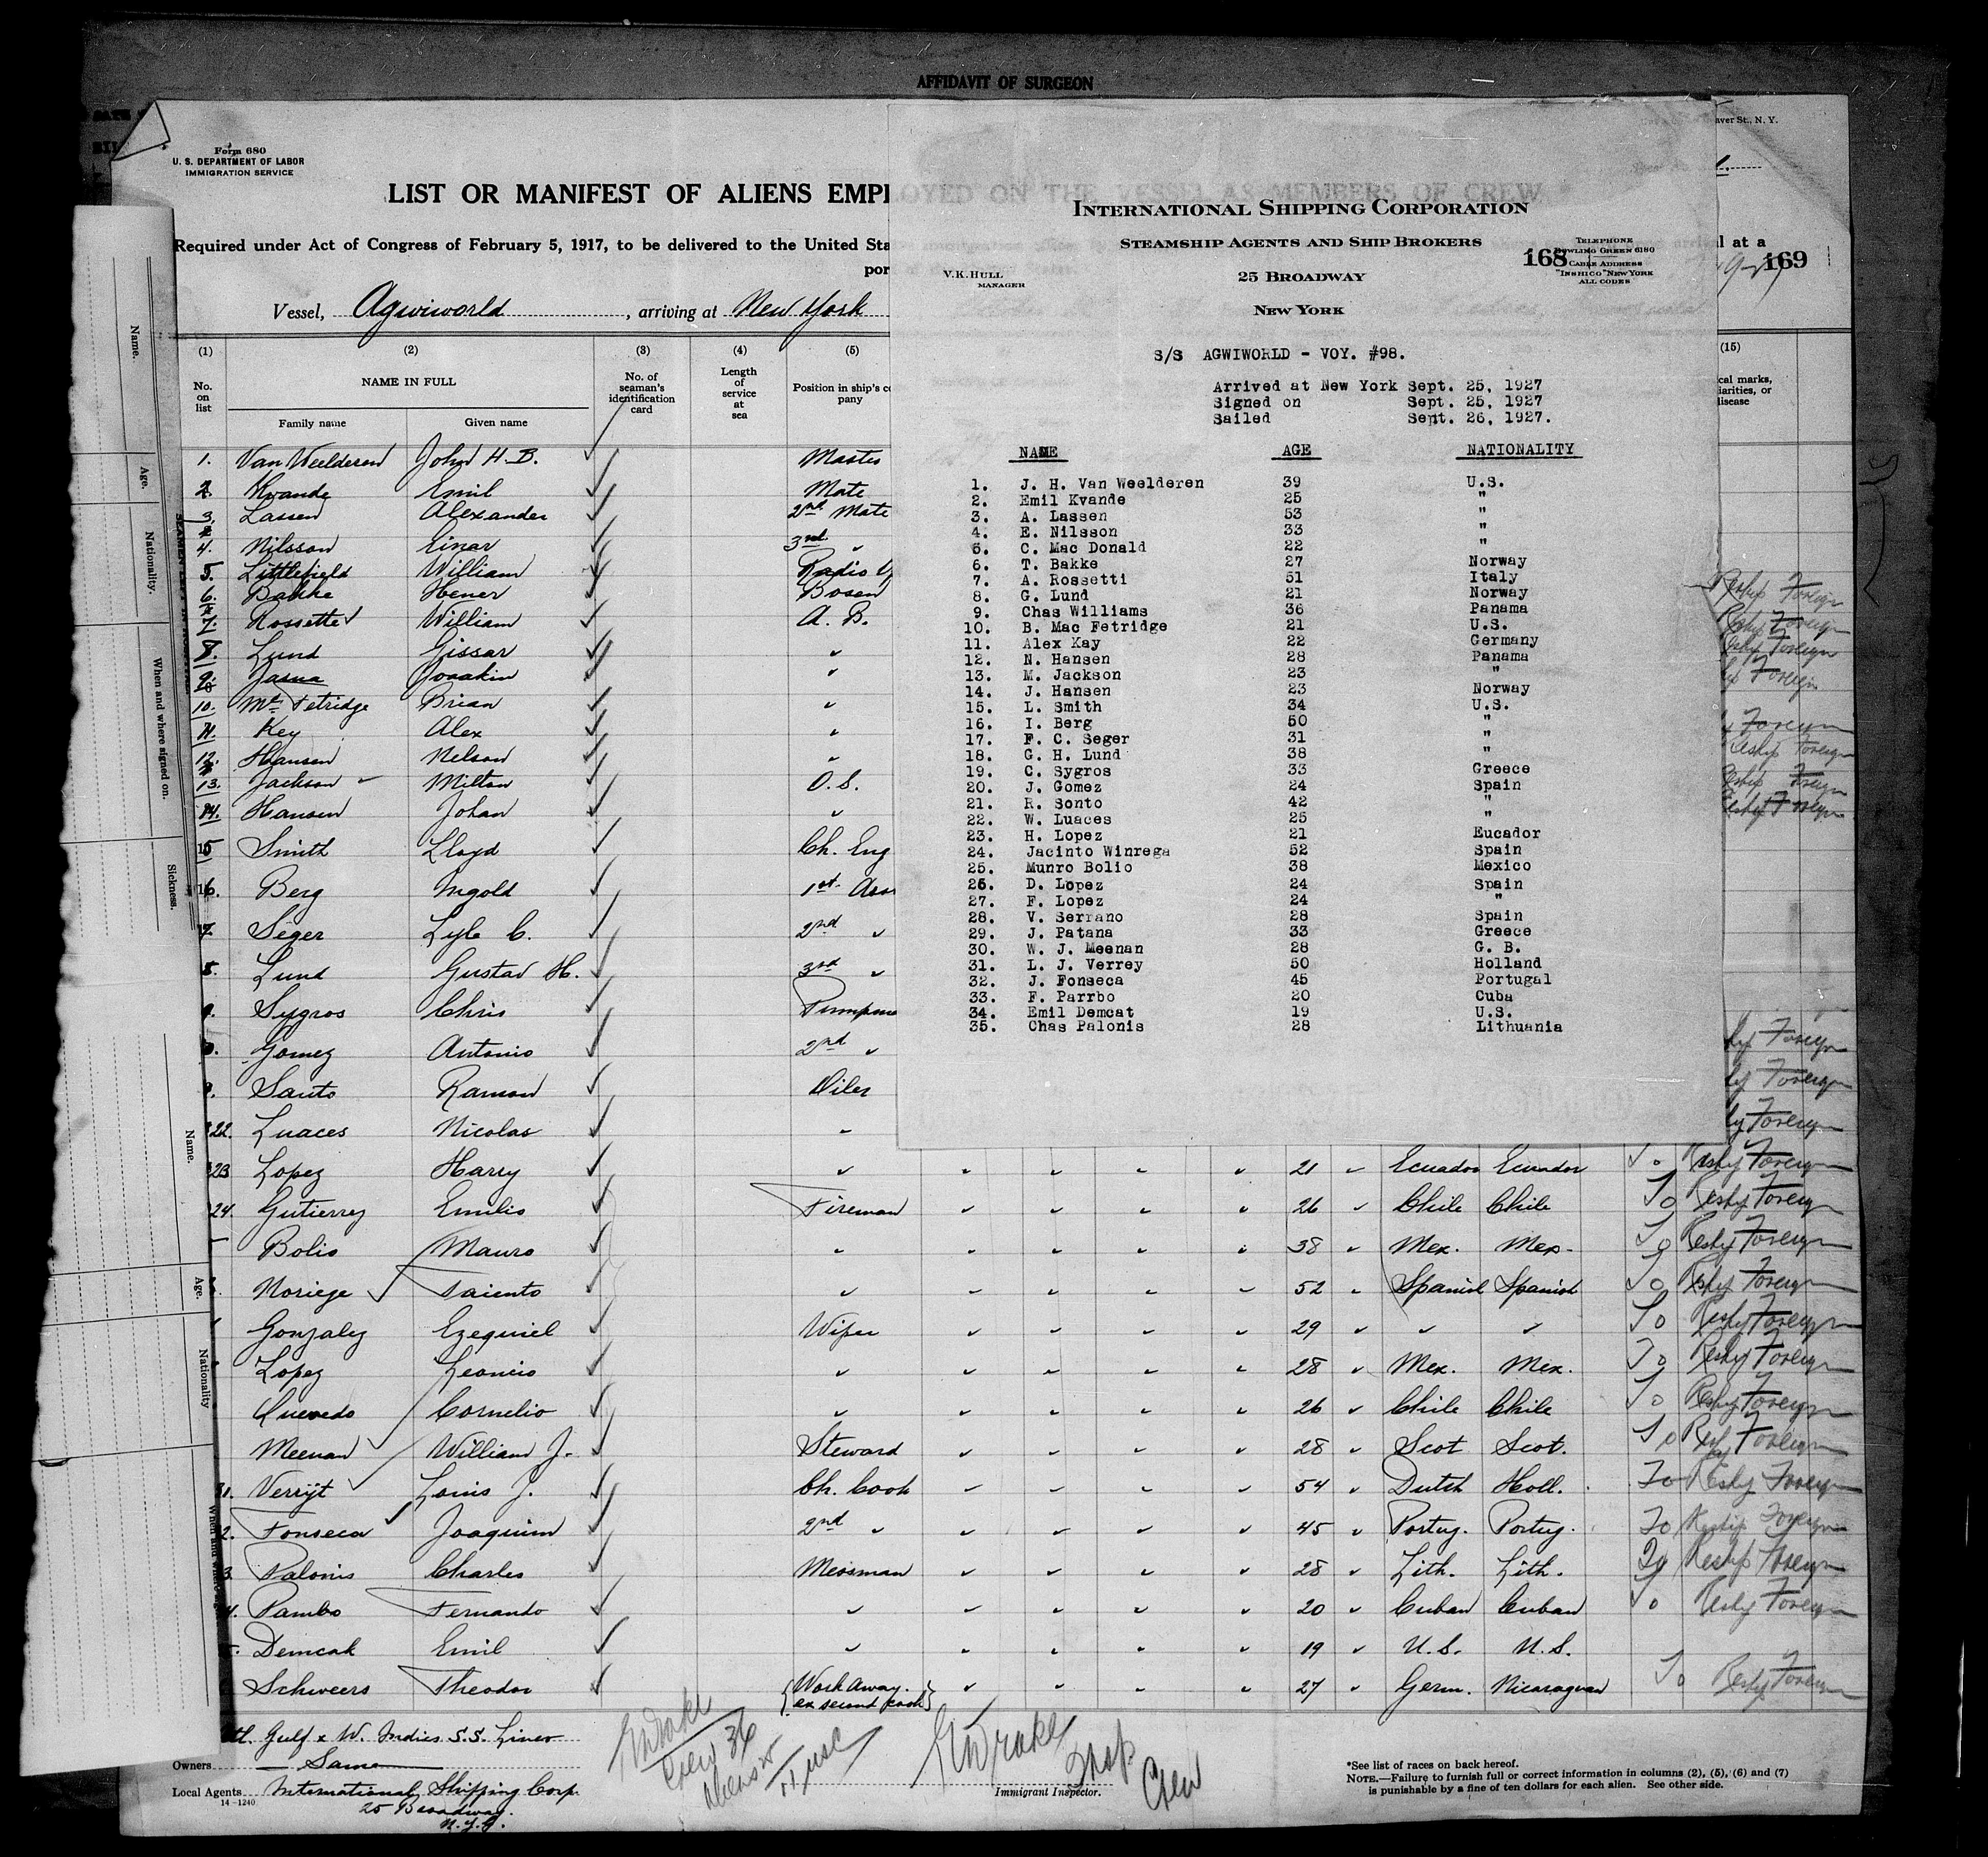 AFFIDAVIT OF SURGEON
Form 680
U. S. DEPARTMENT OF LABOR
IMMIGRATION SERVICE
LIST OR MANIFEST OF ALIENS EMPLOYED ON THE VESSEL AS MEMBERS OF CREW
Required under Act of Congress of February 5, 1917, to be delivered to the United Sta
por
Vessel, Agwiworld, arriving at New York
aver St., N. Y.
l at a
169
INTERNATIONAL SHIPPING CORPORATION
STEAMSHIP AGENTS AND SHIP BROKERS
V.K.HULL
MANAGER
25 BROADWAY
NEW YORK
168
TELEPHONE
BOWLING GREEN 6180
CABLE ADDRESS
"INSHICO" NEW YORK
ALL CODES
S/S AGWIWORLD - VOY. #98.
Arrived at New York Sept. 25, 1927
Signed on Sept. 25, 1927
Sailed Sept. 26, 1927.
NAME AGE NATIONALITY
1. J. H. Van Weelderen 39 U.S.
2. Emil Kvande 25 "
3. A. Lassen 53 "
4. E. Nilsson 33 "
5. C. Mac Donald 22 "
6. T. Bakke 27 Norway
7. A. Rossetti 51 Italy
8. G. Lund 21 Norway
9. Chas Williams 36 Panama
10. B. Mac Fetridge 21 U.S.
11. Alex Kay 22 Germany
12. N. Hansen 28 Panama
13. M. Jackson 23 "
14. J. Hansen 23 Norway
15. L. Smith 34 U.S.
16. I. Berg 50 "
17. F. C. Seger 31 "
18. G. H. Lund 38 "
19. C. Sygros 33 Greece
20. J. Gomez 24 Spain
21. R. Sonto 42 "
22. W. Luaces 25 "
23. H. Lopez 21 Eucador
24. Jacinto Winrega 52 Spain
25. Munro Bolio 38 Mexico
26. D. Lopez 24 Spain
27. F. Lopez 24 "
28. V. Serrano 28 Spain
29. J. Patana 33 Greece
30. W. J. Meenan 28 G. B.
31. L. J. Verrey 50 Holland
32. J. Fonseca 45 Portugal
33. F. Parrbo 20 Cuba
34. Emil Demcat 19 U.S.
35. Chas Palonis 28 Lithuania
(1) (2) (3) (4) (5) (15)
No. on list
NAME IN FULL
Family name Given name
No. of seaman's identification card
Length of service at sea
Position in ship's co
pany
cal marks,
iarities, or
disease
1. Van Weelderen John H. B. Master
2. Kvande Emil Mate
3. Lassen Alexander 2nd Mate
4. Nilsson Einar 3rd "
5. Littlefield William Radio
6. Bakke Hener Bosen
7. Rossette William A. B.
8. Lund Gissar "
9. Jasna Joaakin "
10. Mc Fetridge Brian "
11. Key Alex "
12. Hansen Nelson "
13. Jackson Milton O. S.
14. Hansen Johan "
15 Smith Lloyd Ch. Eng
16. Berg Ingold 1st Ass
7. Seger Lyle C. 2nd "
8. Lund Gustav H. 3rd "
9. Sygros Chris Pumpm
0. Gomez Antonio 2nd "
Santo Ramon Oiler
22. Luaces Nicolas "
23 Lopez Harry " " " " " 21 " Ecuador Ecuador To Reship Foreign
24. Gutierrez Emilio Fireman " " " " 26 " Chile Chile To Reship Foreign
Bolio Mauro " " " " " 38 " Mex. Mex. To Reship Foreign
Noriege Jaiento " " " " " 52 " Spanish Spanish To Reship Foreign
Gonzalez Ezequiel Wiper " " " " 29 " " " To Reship Foreign
Lopez Leoncio " " " " " 28 " Mex. Mex. To Reship Foreign
Quevedo Cornelio " " " " " 26 " Chile Chile To Reship Foreign
Meenan William J. Steward " " " " 28 " Scot Scot. To Reship Foreign
31. Verrijt Louis J. Ch. Cook " " " " 54 " Dutch Holl. To Reship Foreign
2. Fonseca Joaquim 2nd " " " " " 45 " Portug. Portug. To Reship Foreign
3 Palonis Charles Messman " " " " 28 " Lith. Lith. To Reship Foreign
4. Pambo Fernando " " " " " 20 " Cuban Cuban To Reship Foreign
5. Demcak Emil " " " " " 19 " U.S. U.S.
Schweers Theodor Work away. ex second cook " " " " 27 " Germ. Nicaraguan To Reship Foreign
Name.
Age.
Nationality.
When and where signed on.
Sickness.
Name.
Age.
Nationality
tl. Gulf & W. Indies S.S. Lines
Owners Same
Local Agents International Shipping Corp.
14-1240
25 Broadway.
N.Y.C.
Crew 36
Drake
Immigrant Inspector.
Crew
*See list of races on back hereof.
NOTE.—Failure to furnish full or correct information in columns (2), (5), (6) and (7)
is punishable by a fine of ten dollars for each alien. See other side.